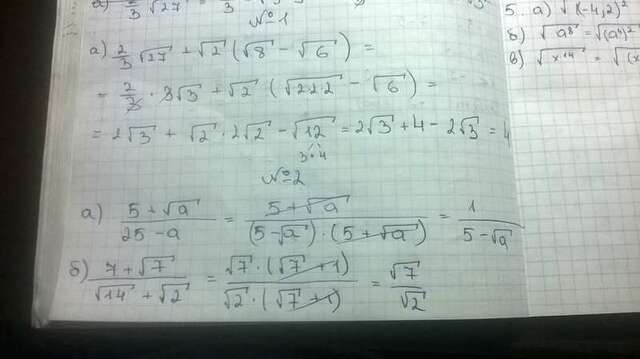 №1
а) 2/3 √27 + √2 (√8 - √6) =
= 2/3 · 3√3 + √2 (√2·2·2 - √6) =
= 2√3 + √2 · 2√2 - √12 = 2√3 + 4 - 2√3 = 4
3·4
№2
а) (5 + √a)/(25 - a) = (5 + √a)/((5 - √a) · (5 + √a)) = 1/(5 - √a)
б) (7 + √7)/(√14 + √2) = (√7 · (√7 + 1))/(√2 · (√7 + 1)) = √7/√2
5. а) √(-4,2)²
б) √a⁸ = √(a⁴)²
в) √x¹⁴ = √(x